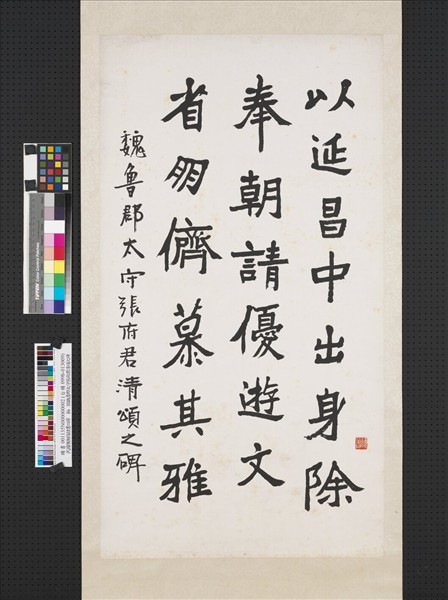 以延昌中出身除
奉朝請優遊文
省朋儕慕其雅
魏魯郡太守張府君清頌之碑